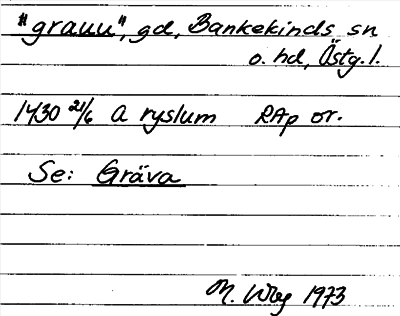 "grauu", gd, Bankekinds sn
o. hd, Östg. l.
1430 21/6 A ryslum RAp or.
Se: Gräva
M. Wbg 1973